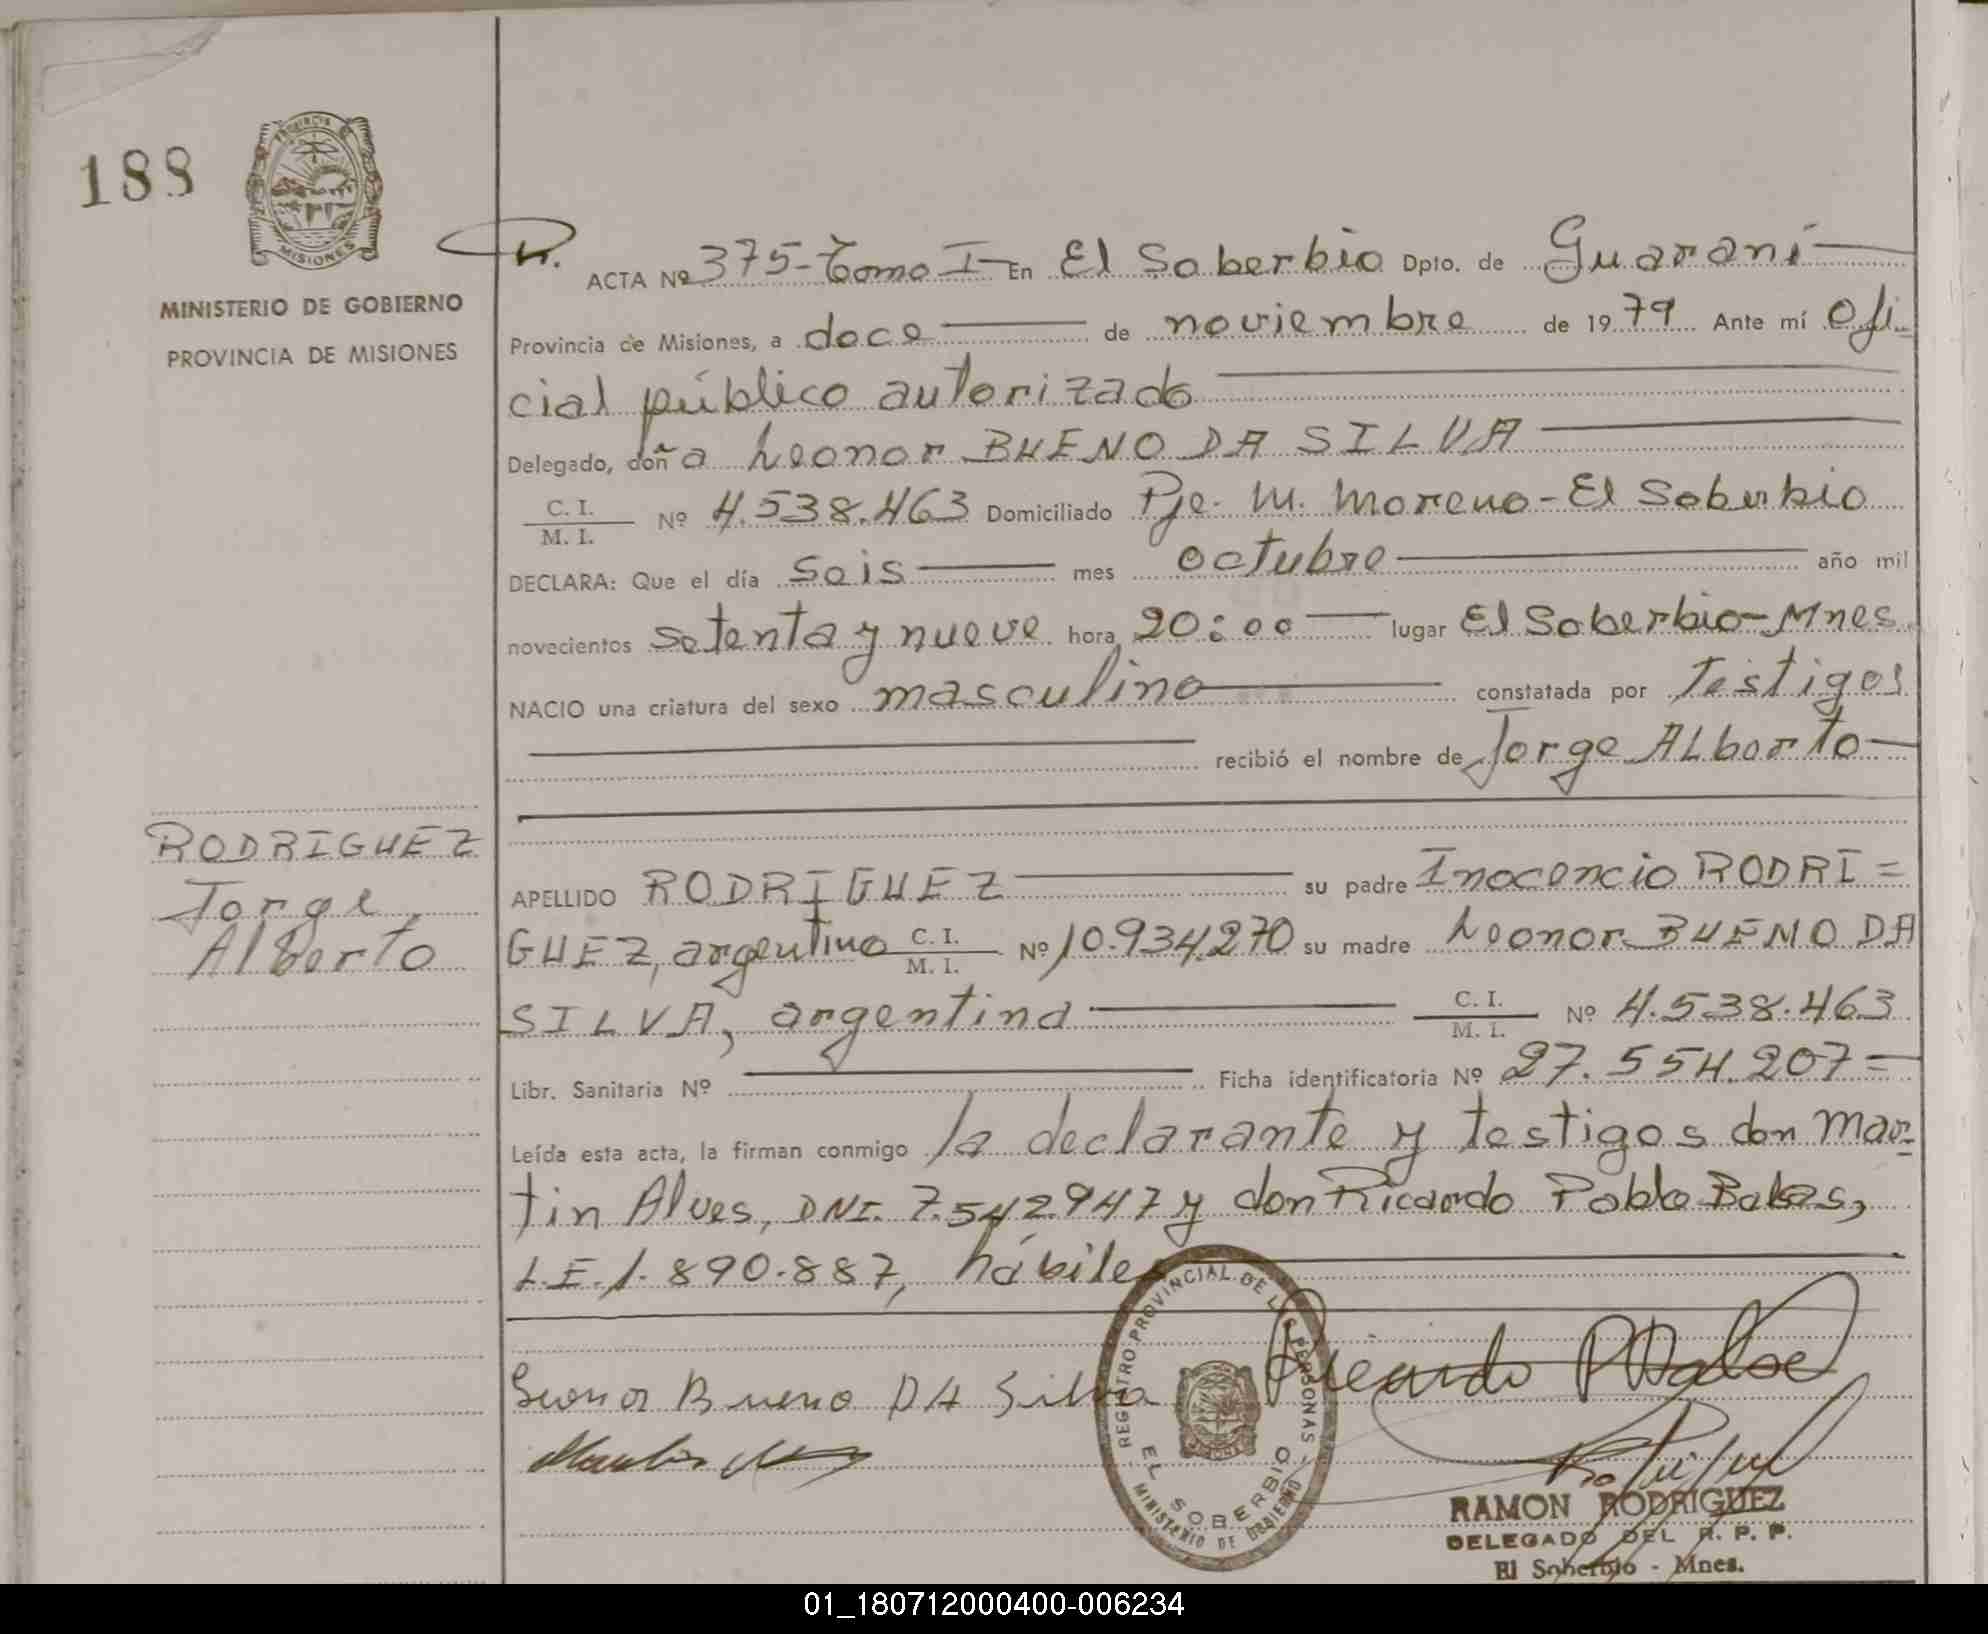 188
PROVINCIA DE
MISIONES
MINISTERIO DE GOBIERNO
PROVINCIA DE MISIONES
ACTA Nº 375-Tomo I- En El Soberbio Dpto. de Guaraní
Provincia de Misiones, a doce de noviembre de 1979 Ante mí Ofi-
cial público autorizado
Delegado, doña Leonor BUENO DA SILVA
C. I.
M. I. Nº 4.538.463 Domiciliado Pje. M. Moreno - El Soberbio
DECLARA: Que el día seis mes octubre año mil
novecientos setenta y nueve hora 20:00 lugar El Soberbio-Mnes.
NACIO una criatura del sexo masculino constatada por testigos
recibió el nombre de Jorge ALberto
RODRIGUEZ
Jorge
Alberto
APELLIDO RODRIGUEZ su padre Inocencio RODRI=
GUEZ, argentino C. I. M. I. Nº 10.934.270 su madre Leonor BUENO DA
SILVA, argentina C. I. M. I. Nº 4.538.463
Libr. Sanitaria Nº Ficha identificatoria Nº 27.554.207=
Leída esta acta, la firman conmigo la declarante y testigos don Mar-
tin Alves, DNI. 7.542.947 y don Ricardo Pablo
L.E. 1.890.887, hábiles
REGISTRO PROVINCIAL DE LAS PERSONAS
EL SOBERBIO
MINISTERIO DE GOBIERNO
Leonor Bueno DA Silva
Ricardo
RAMON RODRIGUEZ
DELEGADO DEL R. P. P.
El Soberbio - Mnes.
01_180712000400-006234